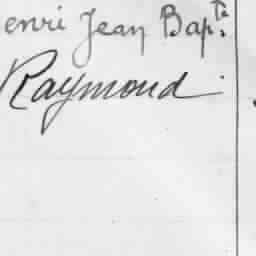 enri Jean Bap.te
Raymond